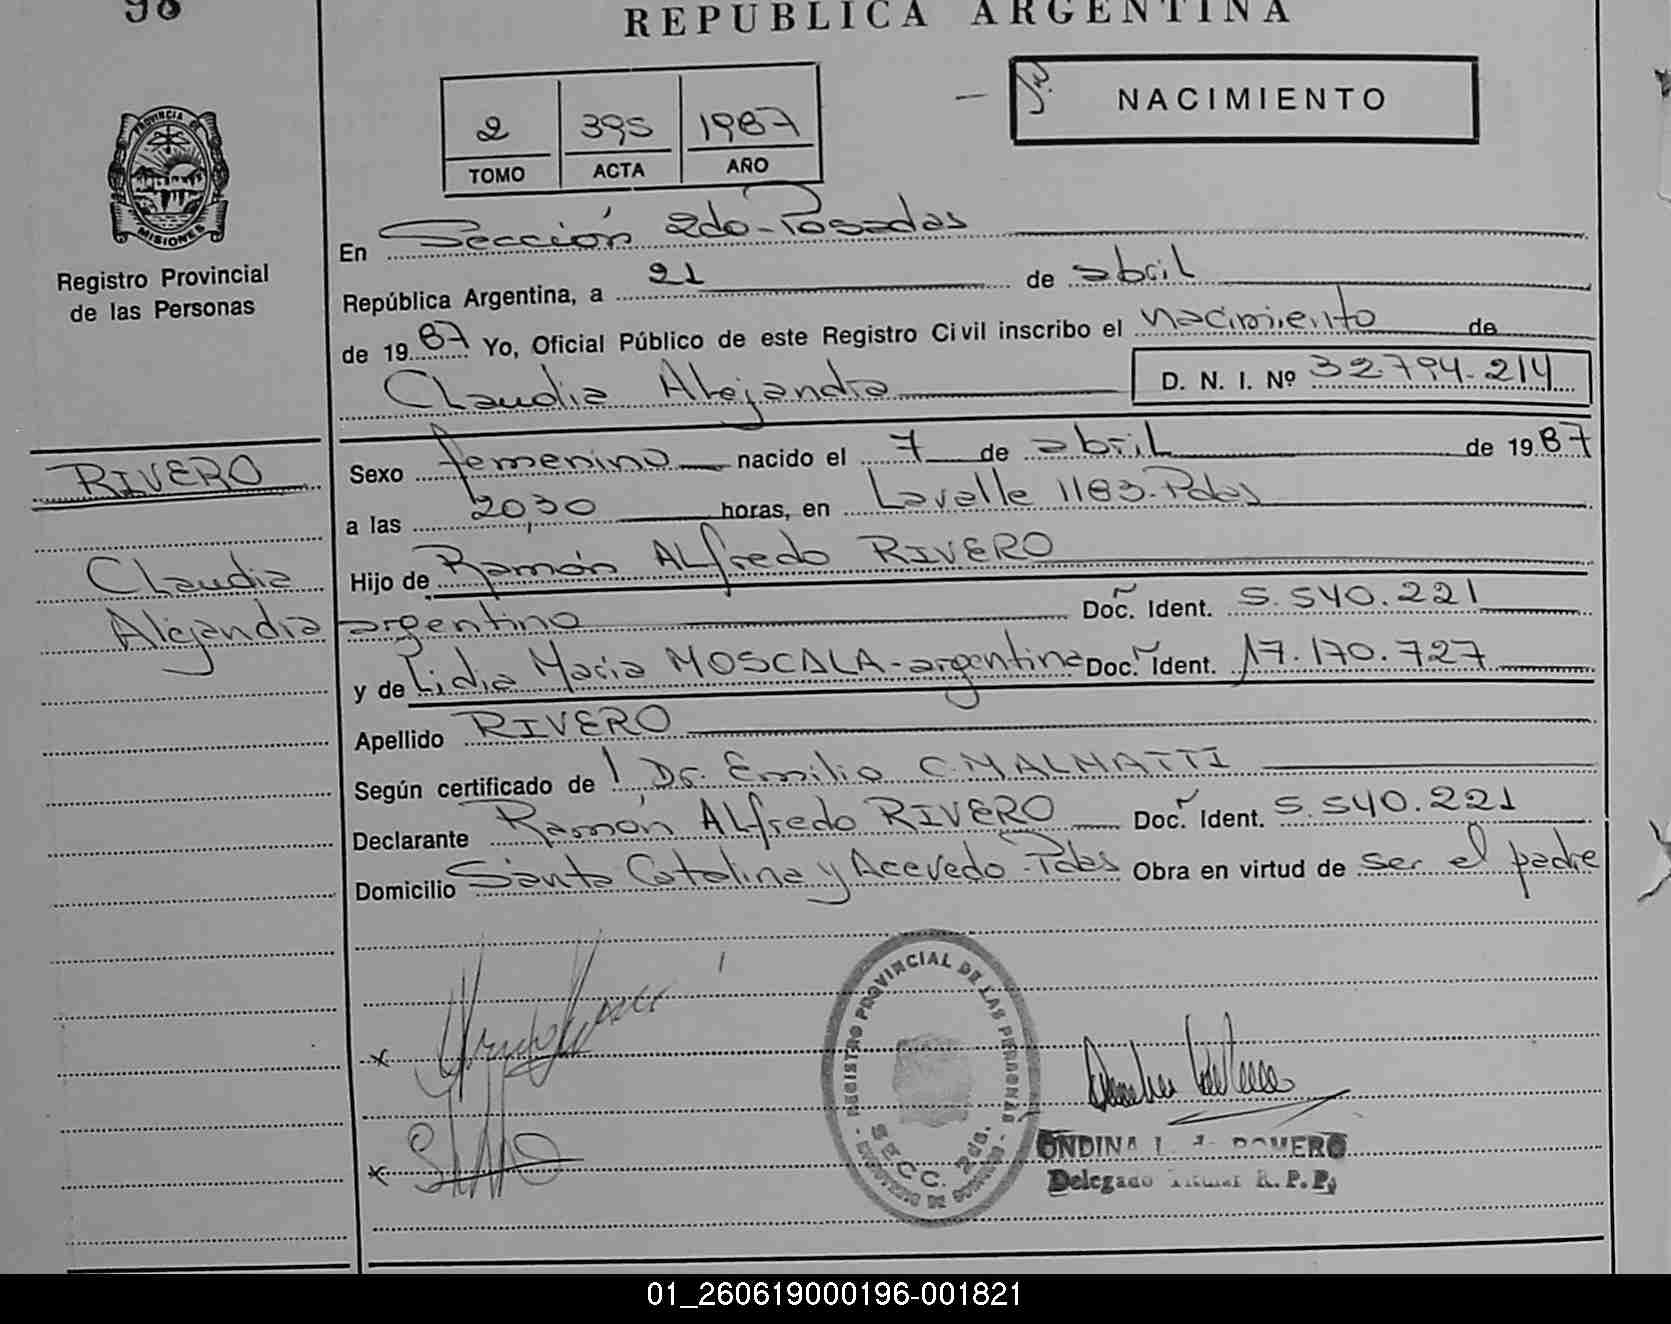 98
REPUBLICA ARGENTINA
NACIMIENTO
2 395 1987
TOMO ACTA AÑO
PROVINCIA DE
MISIONES
Registro Provincial
de las Personas
En Sección 2do-Posadas
República Argentina, a 21 de abril
de 1987 Yo, Oficial Público de este Registro Civil inscribo el nacimiento de
Claudia Alejandra D. N. I. Nº 32.794.214
RIVERO
Claudia
Alejandra
Sexo femenino nacido el 7 de abril de 1987
a las 20,30 horas, en Lavalle 1183-Pdas
Hijo de Ramón ALfredo RIVERO
argentino Doc. Ident. 5.540.221
y de Lidia Maria MOSCALA-argentina Doc. Ident. 17.170.727
Apellido RIVERO
Según certificado de Dr. Emilio C. MALMATTI
Declarante Ramón ALfredo RIVERO Doc. Ident. 5.540.221
Domicilio Santa Catalina y Acevedo-Pdas Obra en virtud de ser el padre
REGISTRO PROVINCIAL DE LAS PERSONAS
SECC. 2da.
ONDINA ROMERO
Delegado Titular R.P.P.
01_260619000196-001821